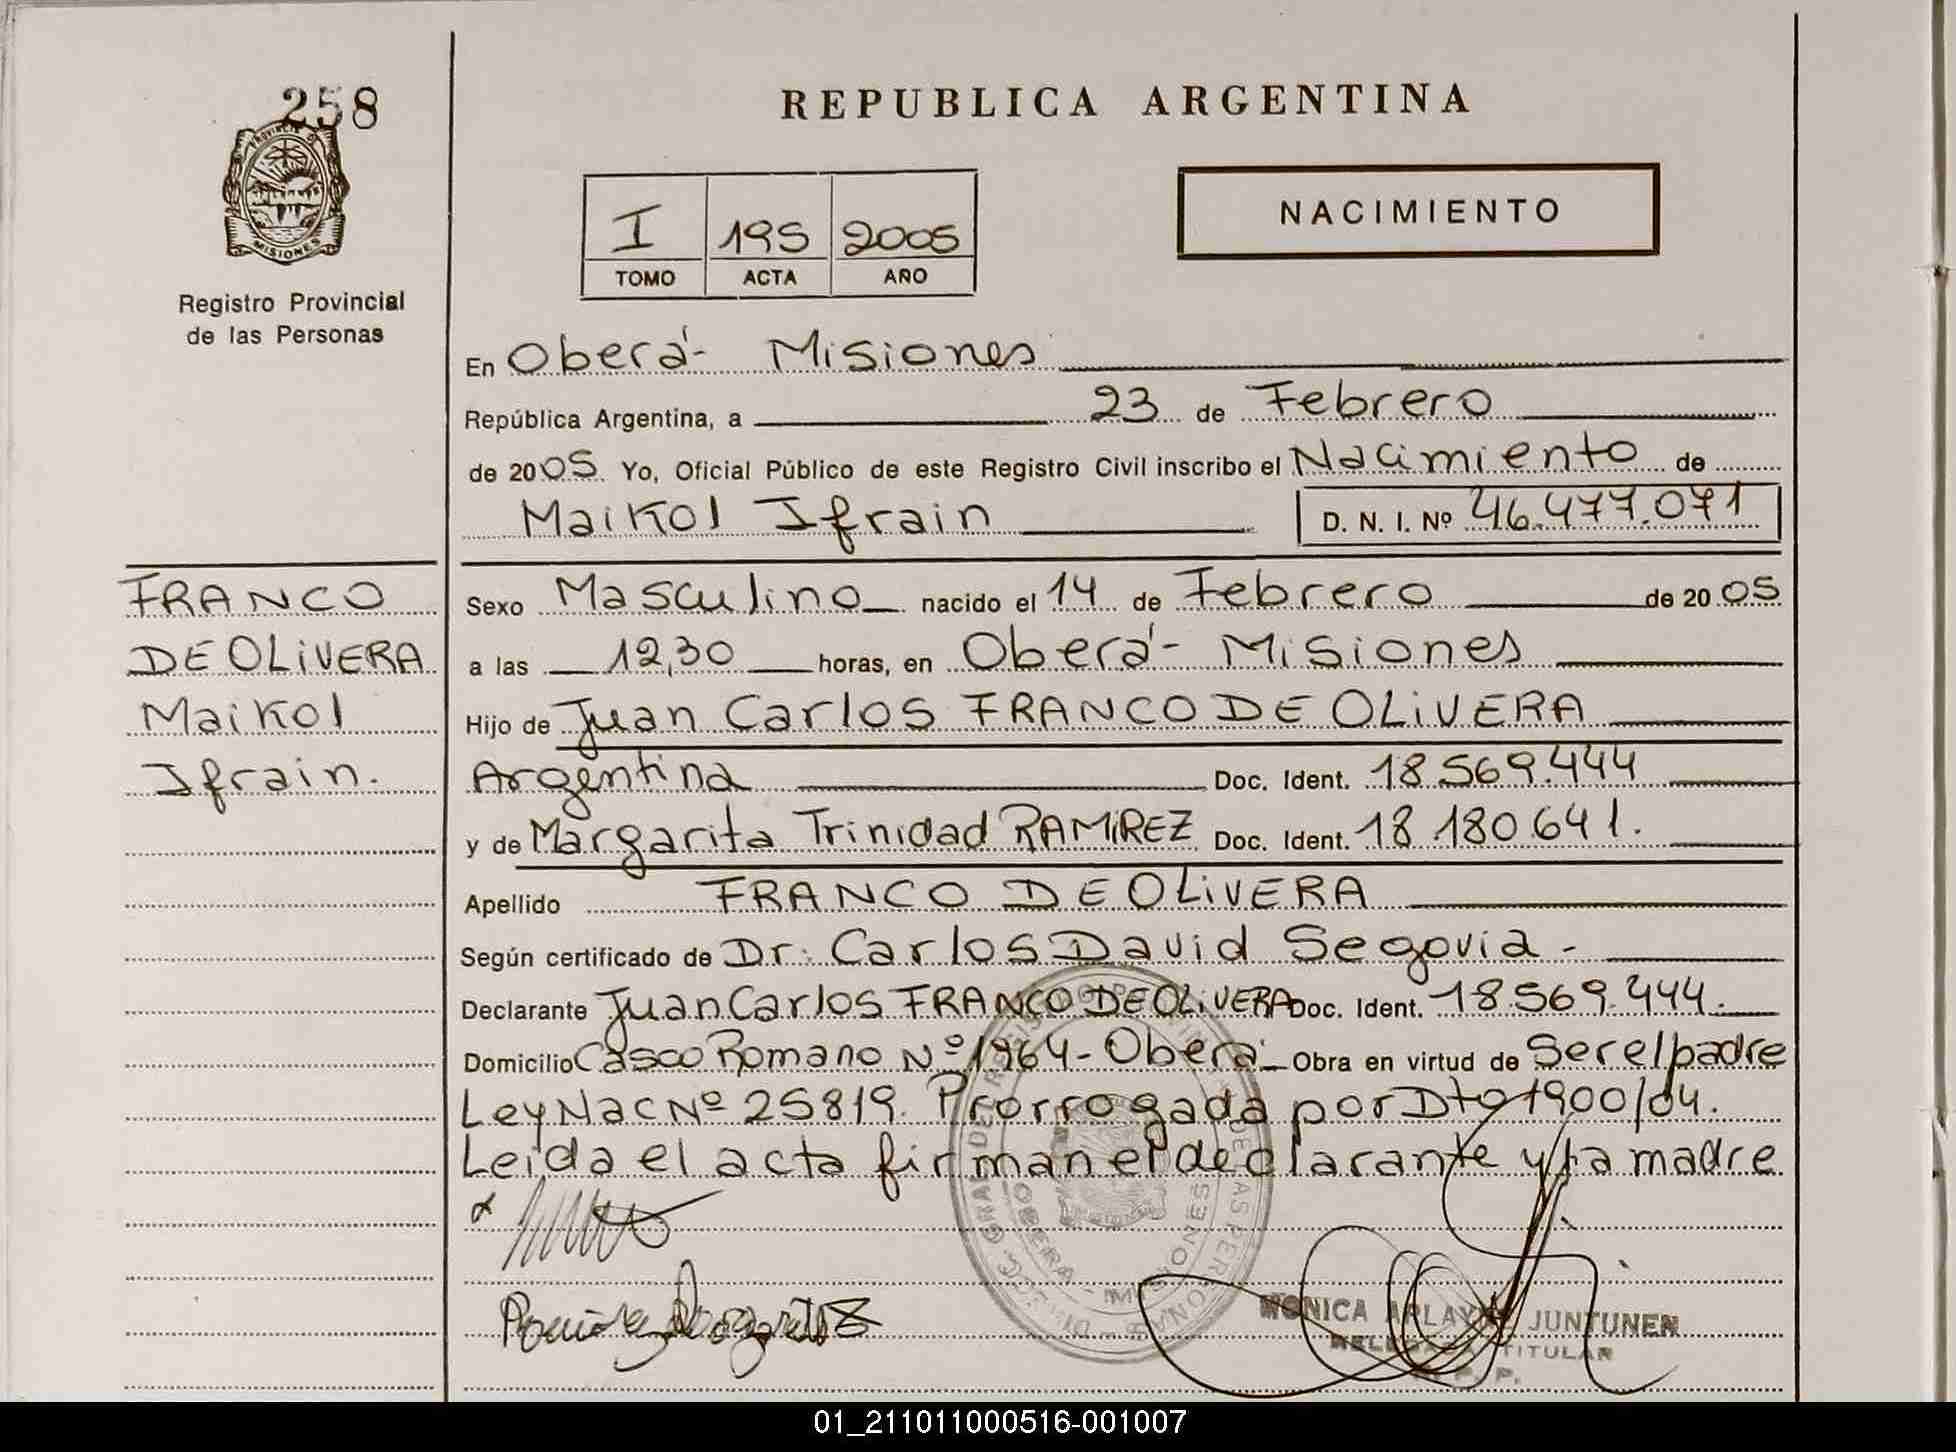 258
PROVINCIA DE
MISIONES
Registro Provincial
de las Personas
REPUBLICA ARGENTINA
I 195 2005
TOMO ACTA AÑO
NACIMIENTO
En Oberá - Misiones
República Argentina, a 23 de Febrero
de 2005 Yo, Oficial Público de este Registro Civil inscribo el Nacimiento de
Maikol Ifrain D. N. I. Nº 46.477.071
FRANCO
DE OLIVERA
Maikol
Ifrain.
Sexo Masculino nacido el 14 de Febrero de 2005
a las 12,30 horas, en Oberá - Misiones
Hijo de Juan Carlos FRANCO DE OLIVERA
Argentina Doc. Ident. 18.569.444
y de Margarita Trinidad RAMIREZ Doc. Ident. 18 180 641.
Apellido FRANCO DE OLIVERA
Según certificado de Dr. Carlos David Segovia -
Declarante Juan Carlos FRANCO DE OLIVERA Doc. Ident. 18.569.444.
Domicilio Casco Romano Nº 1964 - Oberá - Obra en virtud de Ser el padre
Ley Nac Nº 25819. Prorrogada por Dto 1900/04.
Leida el acta firman el declarante y la madre
OBERA - MISIONES
MONICA JUNTUNEN
DELEGADA TITULAR
01_211011000516-001007